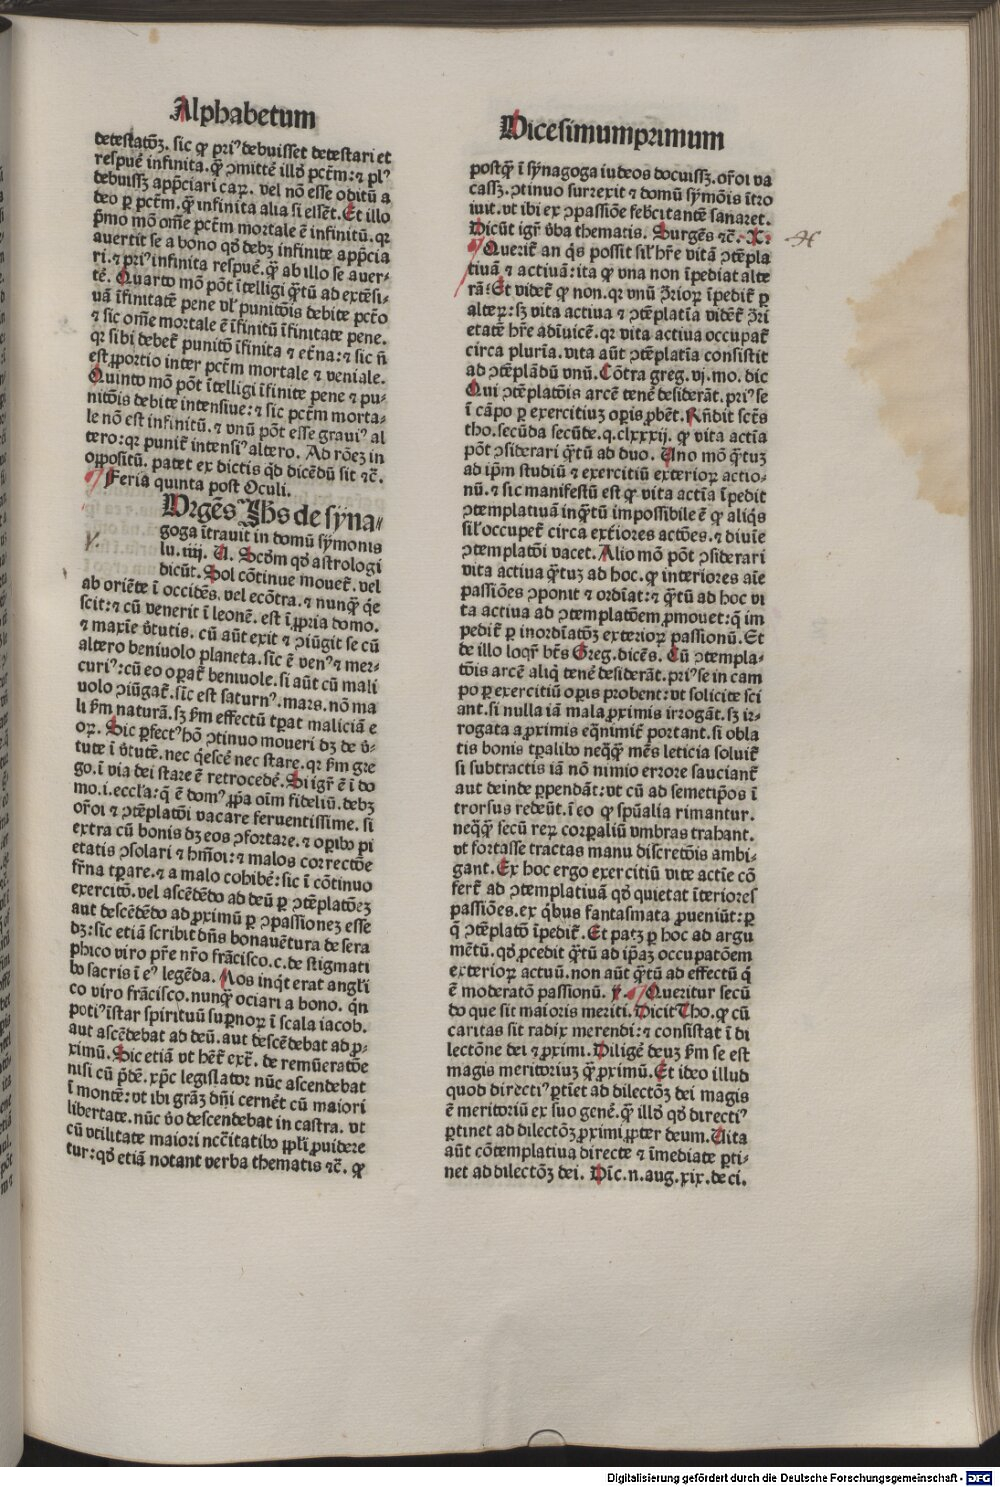 Alphabetum
detestatōꝫ. sic ꝙ priꝰ debuisset detestari et
respuē infinita. ꝙ̄ ↄmittē illđ pctm̄: ⁊ plꝰ
debuissꝫ appciari caꝝ. vel nō esse oditū a
deo ꝑ pctm̄. ꝙ̄ infinita alia si essēt. Et illo
p̄mo mō om̄e pctm̄ mortale ē infinitū. qꝛ
avertit se a bono qđ debꝫ infinite appcia
ri. ⁊ priꝰ infinita respuē. ꝙ̄ ab illo se auer-
tē. Quarto mō pōt ītelligi ꝙ̄tū ad extēsi-
uā īfinitatē pene vl̓ punitōis debite pctō
⁊ sic om̄e mortale ē īfinitū īfinitate pene.
qꝛ sibi debet̄ punitō īfinita ⁊ etn̄a: ⁊ sic n̄
est ꝓportio inter pctm̄ mortale ⁊ veniale.
Quinto mō pōt ītelligi īfinite pene ⁊ pu-
nitōis debite intensiue: ⁊ sic pctm̄ morta-
le nō est infinitū. ⁊ vnū pōt esse grauiꝰ al
tero: qꝛ punit̄ intensiꝰ altero. Ad rōeꝫ in
oppositū. patet ex dictis qđ dicēdū sit ⁊c̄.
Feria quinta post Oculi.
Urgēs Ihs de syna-
goga ītrauit in domū symonis
lu. iiij. A. Scđm qđ astrologi
dicūt. Sol cōtinue mouet̄. vel
ab oriēte ī occidēs. vel ecōtra. ⁊ nunꝙ̄ q̇e
scit: ⁊ cū venerit ī leonē. est ī ꝓpria domo.
⁊ maxīe v̓tutis. cū aūt exit ⁊ ↄiūgit se cū
altero beniuolo planeta. sic ē venꝰ ⁊ mer-
curiꝰ: cū eo operat̄ beniuole. si aūt cū mali
uolo ↄiūgat̄. sic est saturnꝰ. mars. nō ma
li ẜm naturā. sꝫ ẜm effectū tꝑat maliciā e
oꝝ. Sic ꝑfectꝰ hō ↄtinuo moueri dꝫ de v̓-
tute ī v̓tutē. nec q̇escē nec stare. qꝛ ẜm gre
go. ī via dei stare ē retrocedē. Si igr̄ ē ī do
mo. i. eccl̓a: q̄ ē domꝰ ꝓpa oīm fideliū. debꝫ
or̄oi ⁊ ↄtēplatōi vacare feruentissime. si
extra cū bonis dꝫ eos ↄfortare. ⁊ oꝑibꝰ pi
etatis ↄsolari ⁊ hm̄oi: ⁊ malos correctōe
fr̄na tꝑare. ⁊ a malo cohibē: sic ī cōtinuo
exercitō. vel ascēdēdo ad deū ꝑ ↄtēplatōeꝫ
aut descēdēdo ad ꝓximū ꝑ ↄpassioneꝫ esse
dꝫ: sic etiā scribit dn̄s bonauētura de sera
phico viro pr̄e nr̄o frācisco. c. de stigmati
bꝰ sacris ī eꝰ legēda. Mos inqͥt erat angl̓i
co viro frācisco. nunꝙ̄ ociari a bono. qͥn
potiꝰ īstar spirituū suꝑnoꝝ ī scala iacob.
aut ascēdebat ad deū. aut descēdebat ad ꝓ-
ximū. Sic etiā vt het̄ ext̄. de remūeratōe
nisi cū pͥdē. xpc̄ legislator nūc ascendebat
ī montē: vt ibi gr̄aꝫ dn̄i cernēt cū maiori
libertate. nūc v̓o descendebat in castra. vt
cū vtilitate maiori ncc̄itatibꝰ ppl̓i ꝓuidere
tur: qđ etiā notant verba thematis ⁊c̄. ꝙ
Vicesimumprimum
postꝙ̄ ī synagoga iudeos docuissꝫ. or̄oi va
cassꝫ. ↄtinuo surrexit ⁊ domū symōis ītro
iuit. vt ibi ex ↄpassiōe febcitantē sanaret.
Dicūt igr̄ v̓ba thematis. Surgēs ⁊c̄. X:
Querit̄ an q̇s possit sil̓ hr̄e vitā ↄtēpla
tiuā ⁊ actiuā: ita ꝙ vna non īpediat alte
rā: Et videt̄ ꝙ non. qꝛ vnū ↄ̄rioꝝ īpedit̄ ꝑ
alteꝝ: sꝫ vita actiua ⁊ ↄtēplatīa vident̄ ↄ̄ri
etatē hr̄e adīuicē. qꝛ vita actiua occupat̄
circa plurīa. vita aūt ↄtēplatīa consistit
ad ↄtēplādū vnū. Cōtra greg. vj. mo. dic
Qui ↄtēplatōis arcē tenē desiderāt. priꝰ se
ī cāpo ꝑ exercitiuꝫ oꝑis ꝓbēt. Rn̄dit sct̄s
tho. secūda secūde. q. clxxxij. ꝙ vita actīa
pōt ↄsiderari ꝙ̄tū ad duo. Uno mō ꝙ̄tuꝫ
ad ip̄m studiū ⁊ exercitiū exterioꝝ actio-
nū. ⁊ sic manifestū est ꝙ vita actīa īpedit
ↄtemplatiuā inꝙ̄tū impossibile ē ꝙ aliq̇s
sil̓ occupet̄ circa ext̓iores actōes. ⁊ diuīe
ↄtemplatōi vacet. Alio mō pōt ↄsiderari
vita actiua ꝙ̄tuꝫ ad hoc. ꝙ interiores aīe
passiōes ↄponit ⁊ ordīat: ⁊ ꝙ̄tū ad hoc vi
ta actiua ad ↄtemplatōem ꝓmouet: q̄ im
pedit̄ ꝑ inordīatōꝫ exterioꝝ passionū. Et
de illo loqͥt̄ bt̄s Greg. dicēs. Cū ↄtempla-
tōis arcē aliq̇ tenē desiderāt. priꝰ se in cam
po ꝑ exercitiū oꝑis probent: vt solicite sci
ant. si nulla iā mala ꝓximis irrogāt. sꝫ ir-
rogata a ꝓximis eq̄nimit̄ portant. si obla
tis bonis tꝑalibꝰ neq̄ꝙ̄ mēs leticia soluit̄
si subtractis iā nō nimio errore sauciant̄
aut deinde ꝑpendāt: vt cū ad semetip̄os ī
trorsus redeūt. ī eo ꝙ spūalia rimantur.
neq̄ꝙ̄ secū reꝝ corꝑaliū vmbras trahant.
vt fortasse tractas manu discretōis ambi-
gant. Ex hoc ergo exercitiū vite actīe cō
fert̄ ad ↄtemplatiuā qđ quietat īteriores
passiōes. ex q̇bus fantasmata ꝓueniūt: ꝑ
q̄ ↄtēplatō īpedit̄. Et patꝫ ꝑ hoc ad argu
mētū. qđ ꝓcedit ꝙ̄tū ad ip̄aꝫ occupatōem
exterioꝝ actuū. non aūt ꝙ̄tū ad effectū q̇
ē moderatō passionū. Y. Queritur secū
do que sit maioris meriti. Dicit Tho. ꝙ cū
caritas sit radix merendi: ⁊ consistat ī di
lectōne dei ⁊ ꝓximi. Diligē deuꝫ ẜm se est
magis meritoriuꝫ ꝙ̄ ꝓximū. Et ideo illud
quod directiꝰ ꝑtīet ad dilectōꝫ dei magis
ē meritoriū ex suo genē. ꝙ̄ illđ qđ directiꝰ
ꝑtinet ad dilectōꝫ ꝓximi ꝓpter deum. Uita
aūt cōtemplatiua directe ⁊ īmediate ꝑti-
net ad dilectōꝫ dei. Dic̄. n. aug. xix. de ci.
Digitalisierung gefördert durch die Deutsche Forschungsgemeinschaft - DFG